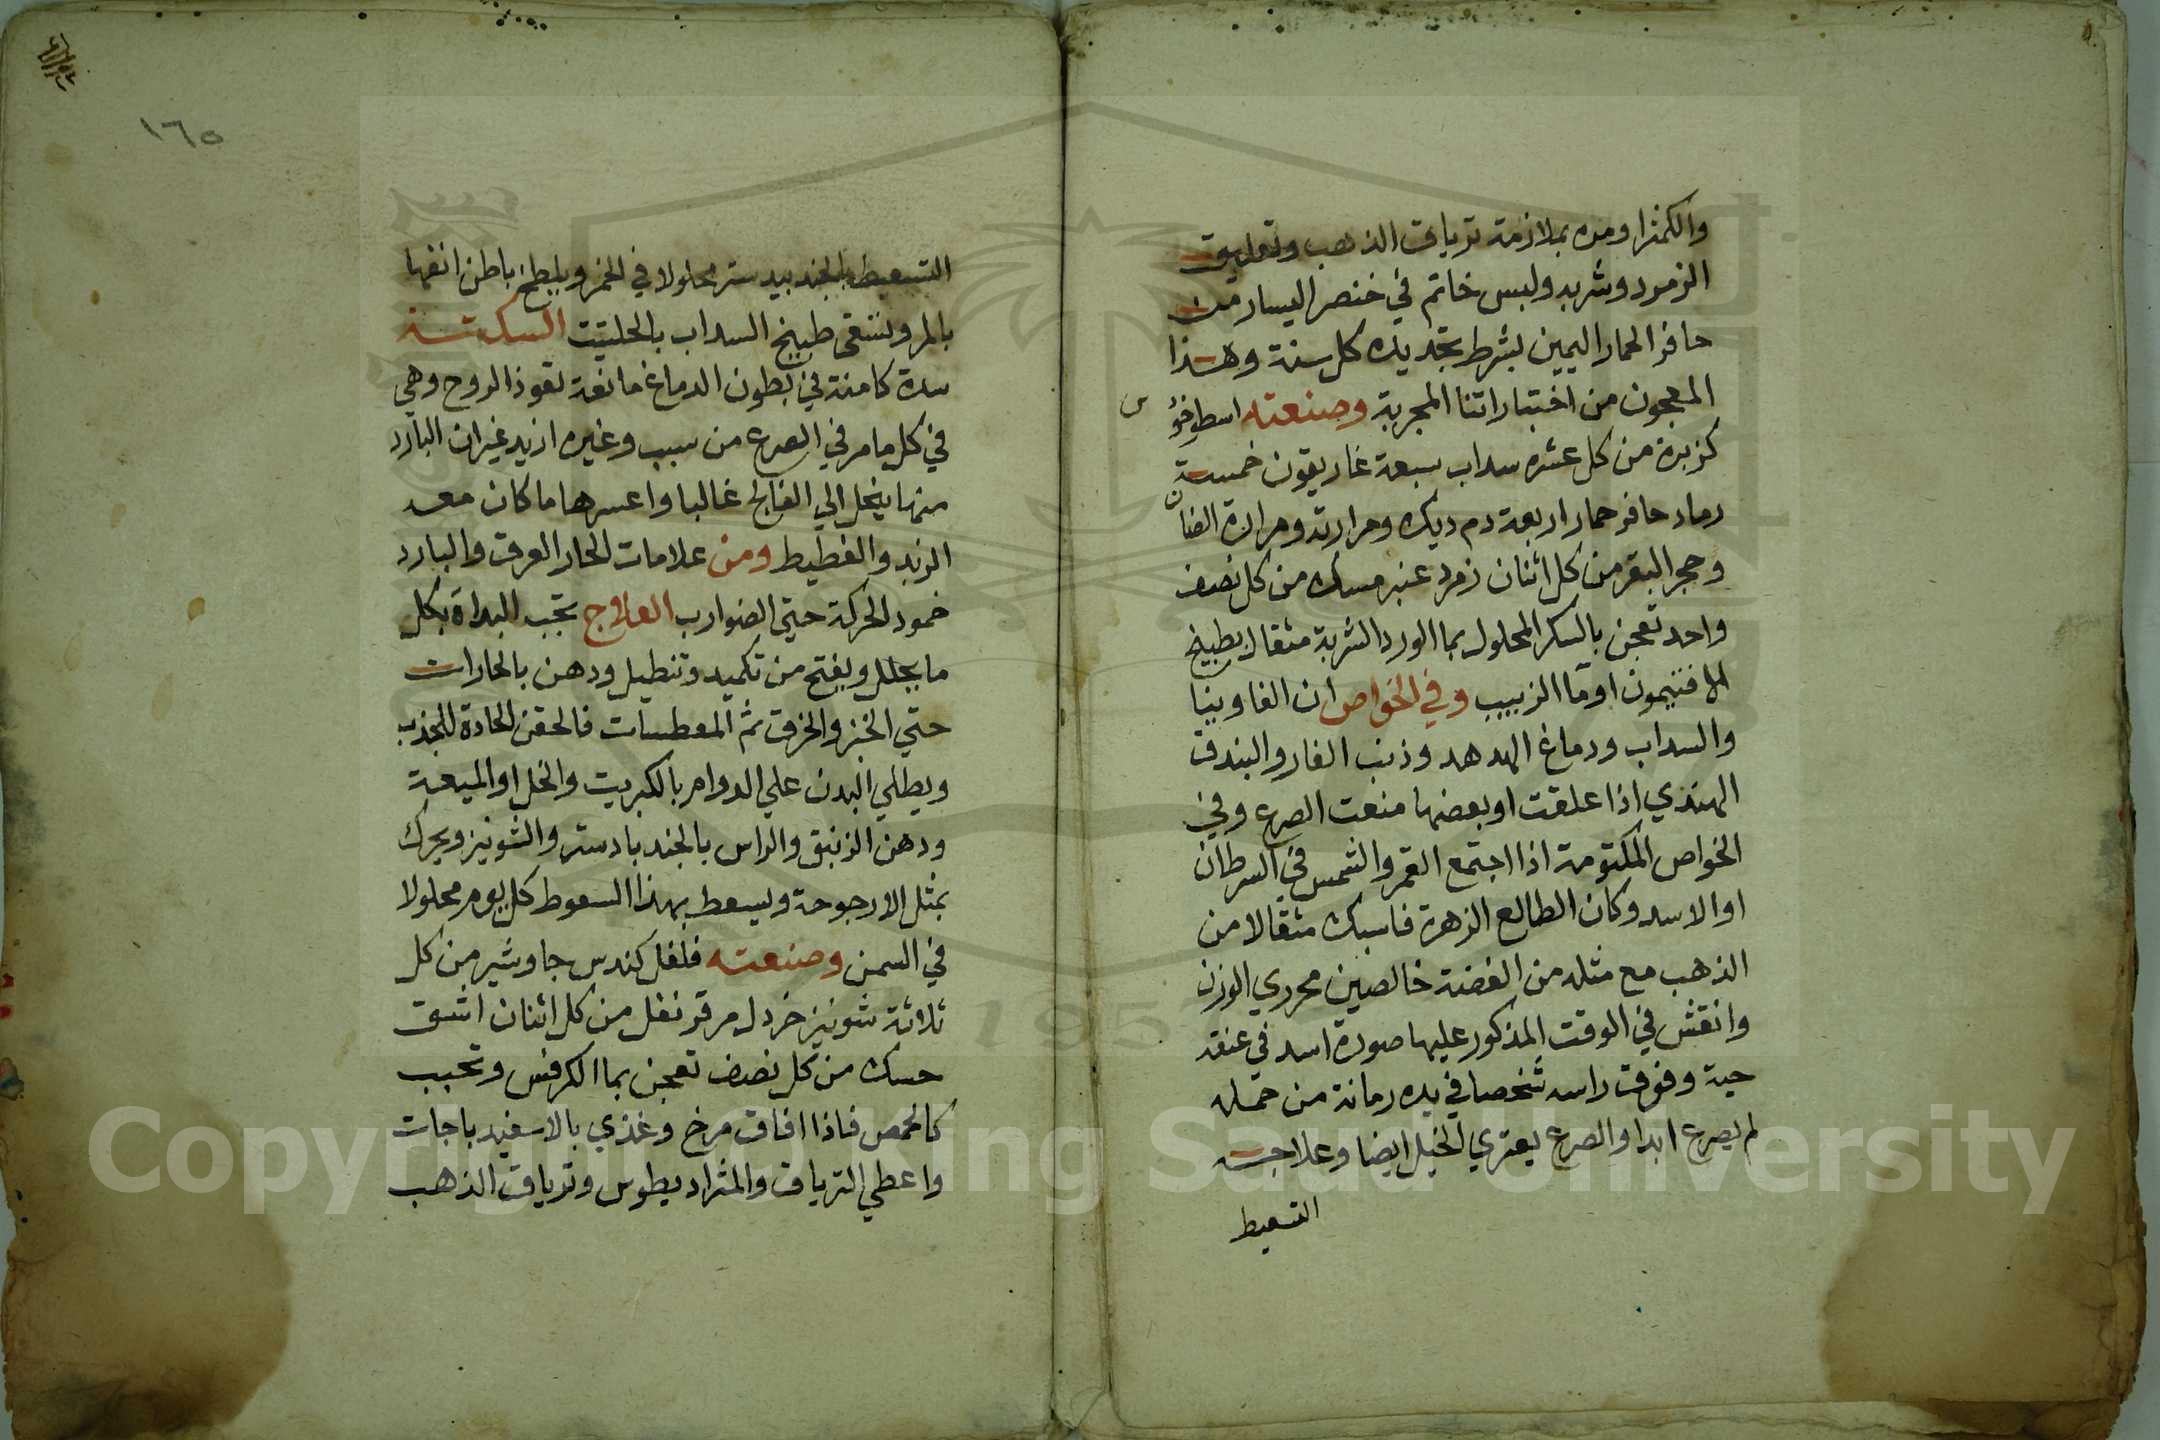 والكمثرا ومره بملازمة ترياق الذهب وتعليق
الزمرد وشربه ولبس خاتم في خنصر اليسار من
حافر الحمار اليمين بشرط تجديده كل سنة وهذا
المعجون من اختباراتنا المجربة وصنعته اسطوخو
س
كزبرة من كل عشره سداب سبعة غاريقون خمسة
رماد حافر حمار اربعة دم ديك ومرارته ومرارة الضان
وحجر البقر من كل اثنان زمرد عنبر مسك من كل نصف
واحد تعجن بالسكر المحلول بما الورد الشربة مثقال بطبيخ
الافتيمون او ما الزبيب وفي الخواص ان الفاوينا
والسداب ودماغ الهدهد وذنب الفار والبندق
الهندي اذا علقت او بعضها منعت الصرع وفي
الخواص المكتومة اذا اجتمع القمر والشمس في السرطان
او الاسد وكان الطالع الزهرة فاسبك مثقالا من
الذهب مع مثله من الفضة خالصين محرري الوزن
وانقش في الوقت المذكور عليها صورة اسد في عنقه
حية وفوق راسه شخصا في يده رمانة من حمله
لم يصرع ابدا والصرع يعتري الخيل ايضا وعلاجه
التسعيط
١٦٥
التسعيط بالجند بيدستر محلولا في الخمر ويلطخ باطن انفها
بالمر وتسقى طبيخ السداب بالحلتيت السكتة
سدة كامنة في بطون الدماغ مانعة نفوذ الروح وهي
في كل ما مر في الصرع من سبب وغيره ازيد غيران البارد
منها ينحل الي الفالج غالبا واعسرها ما كان معه
الزبد والغطيط ومن علامات الحار العرق والبارد
خمود الحركة حتي الضوارب العلاج تجب البداة بكل
ما يحلل ويفتح من تكميد وتنطيل ودهن بالحارات
حتي الخبز والخرق ثم المعطسات فالحقن الحادة للجذب
ويطلي البدن علي الدوام بالكبريت والخل او الميعة
ودهن الزنبق والراس بالجند بادستر والشونيز ويحرك
بمثل الارجوحة ويسعط بهذا السعوط كل يوم محلولا
في السمن وصنعته فلفل كندس جاوشير من كل
ثلاثة شونيز خردل مر قرنفل من كل اثنان اشق
مسك من كل نصف تعجن بما الكرفس وتحبب
كالحمص فاذا افاق مرخ وغذي بالاسفيدباجات
واعطي الترياق والمثراديطوس وترياق الذهب
Copyright © King Saud University
195